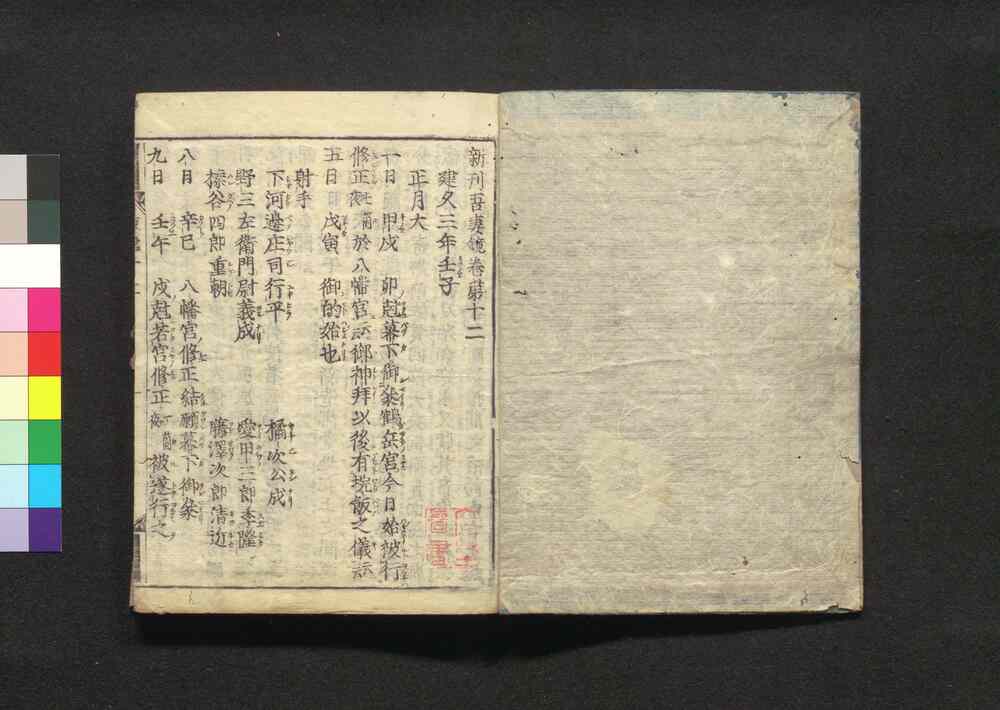 新刊吾妻鏡卷第十二
建久三年壬子
正月大
一日 甲戌 卯尅幕下御參鶴岳宮今日始被行
修正七ヶ夜於八幡宮云御神拜以後有垸飯之儀云
五日 戊寅 御的始也
射手
下河邊庄司行平 橘次公成
野三左衛門尉義成 愛甲三郎季隆
榛谷四郎重朝 藤澤次郎清近
八日 辛巳 八幡宮修正結願幕下御參
九日 壬午 戌尅若宮修正 被遂行之